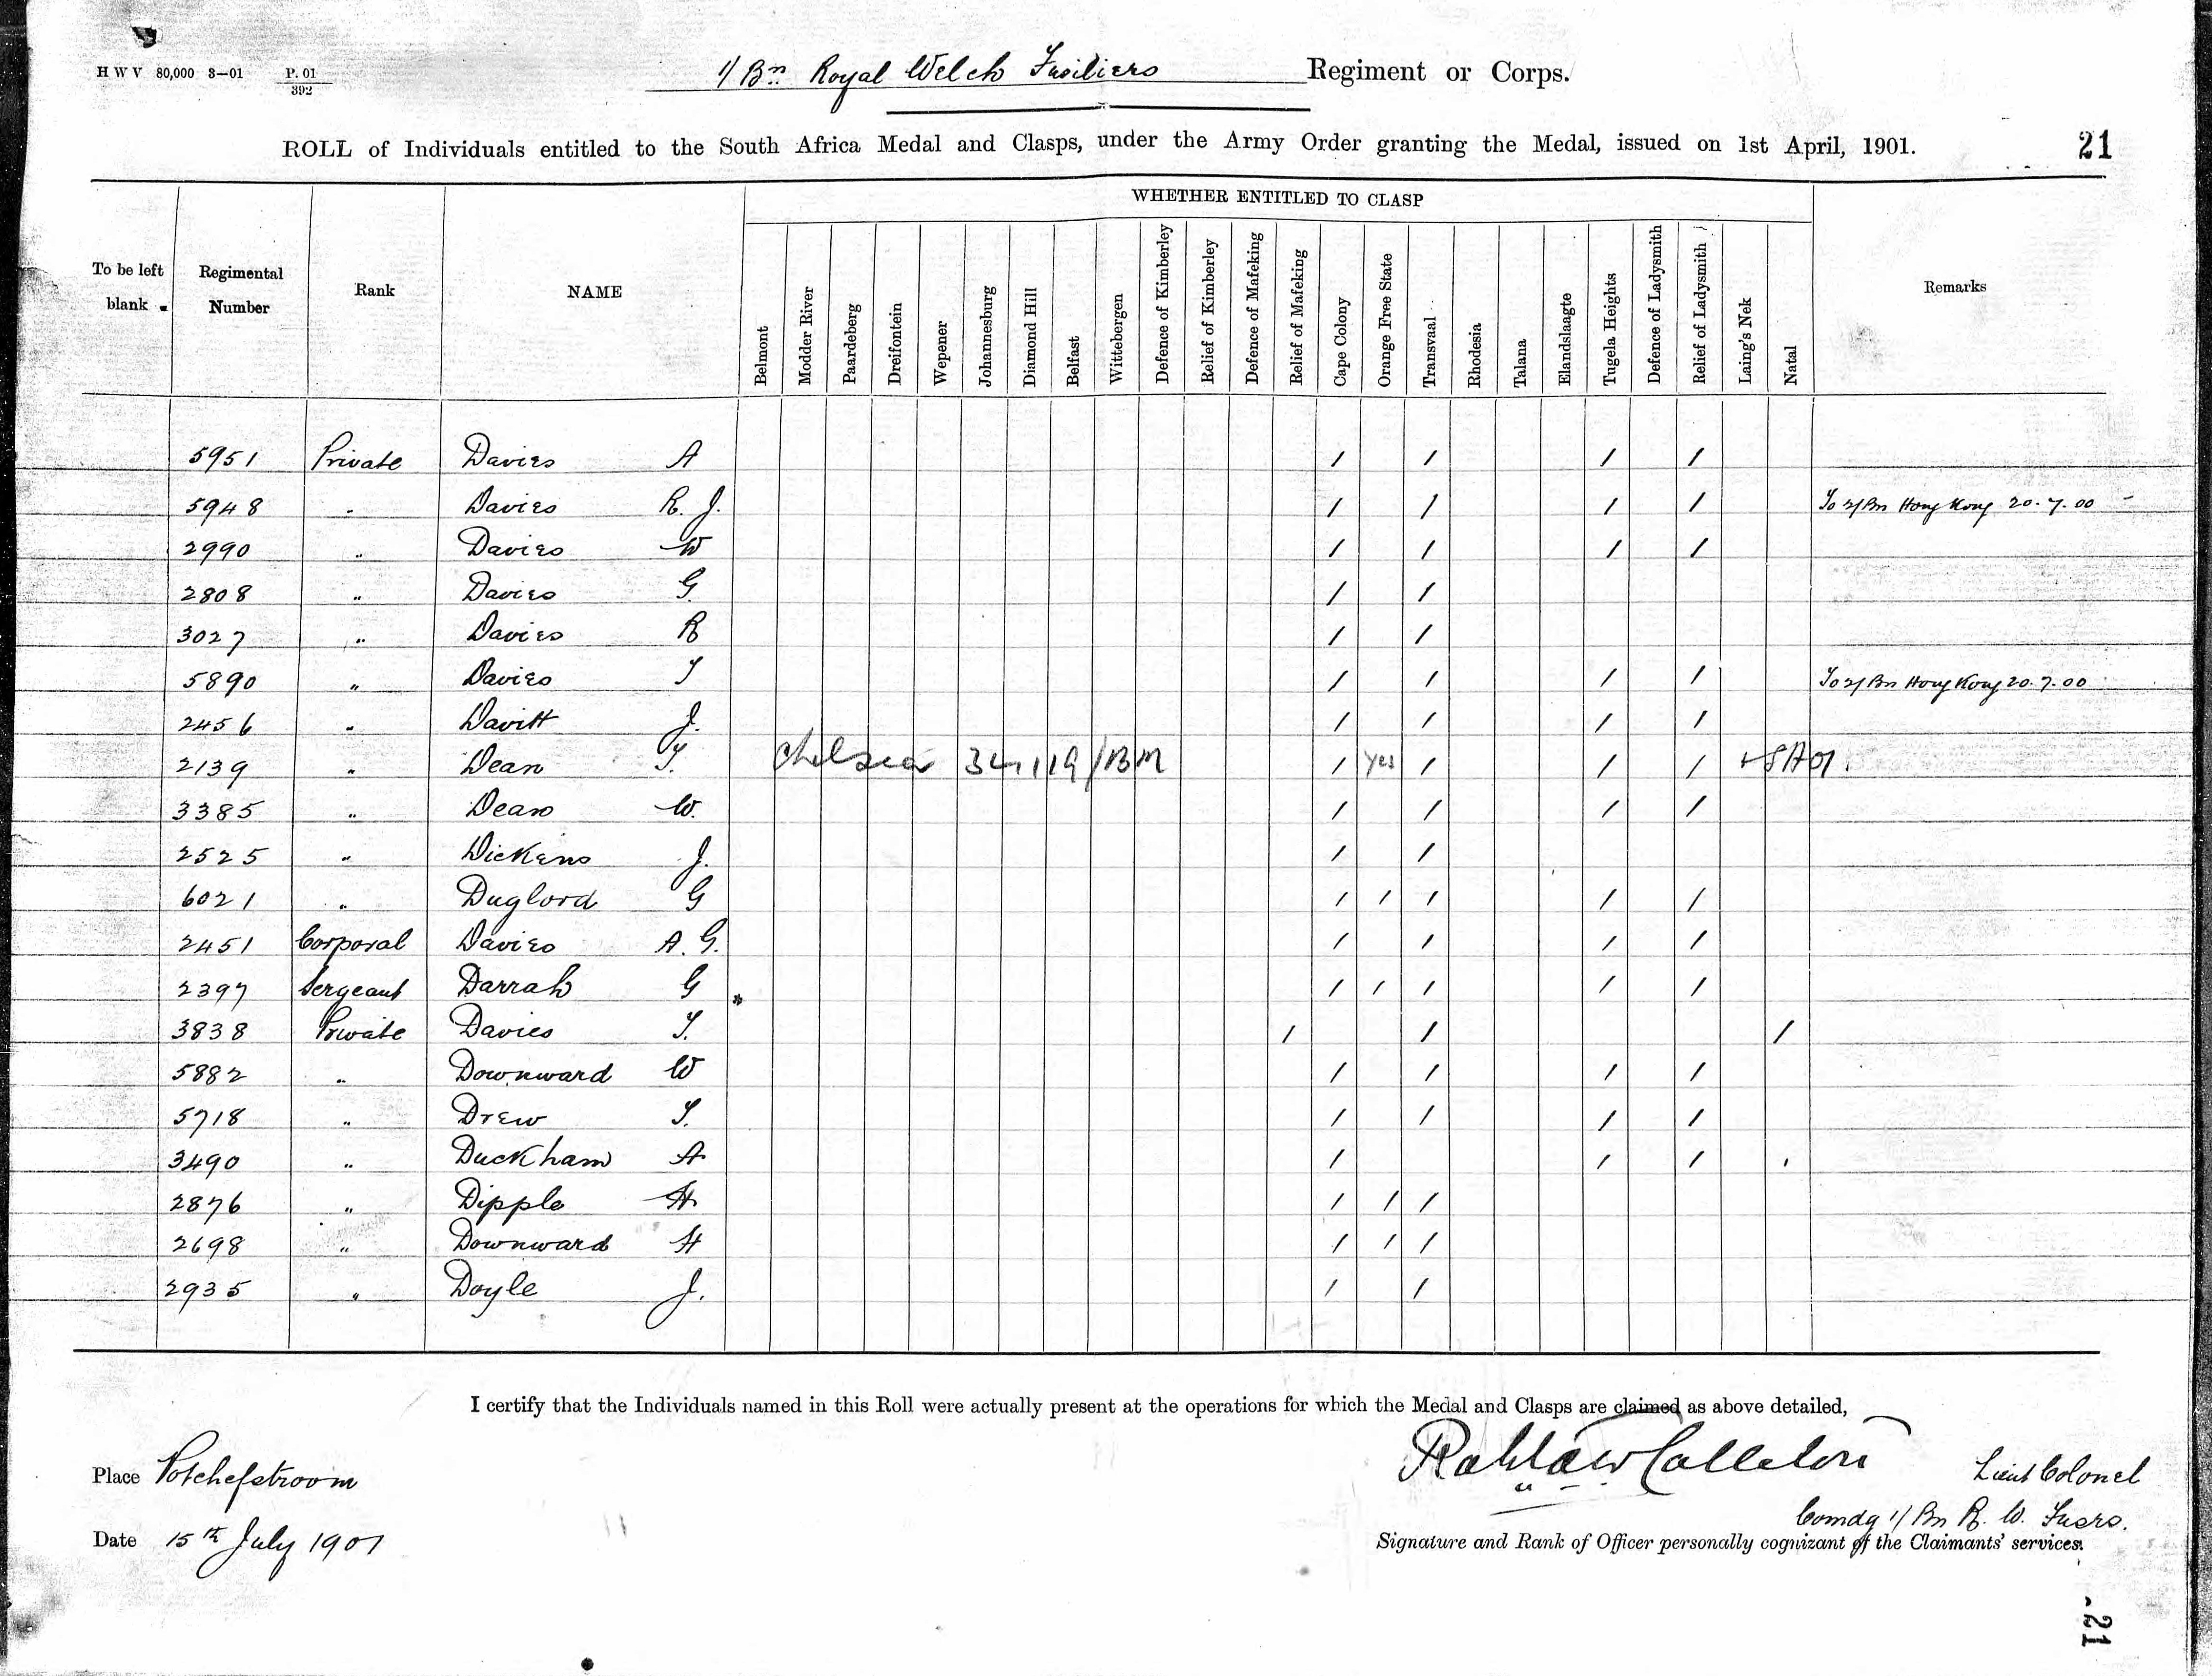 H W V 80,000 3—01 P. 01
392
1/ Bn Royal Welch Fusiliers Regiment or Corps.
ROLL of Individuals entitled to the South Africa Medal and Clasps, under the Army Order granting the Medal, issued on 1st April, 1901. 21
WHETHER ENTITLED TO CLASP
To be left blank Regimental Number Rank NAME Belmont Modder River Paardeberg Dreifontein Wepener Johannesburg Diamond Hill Belfast Wittebergen Defence of Kimberley Relief of Kimberley Defence of Mafeking Relief of Mafeking Cape Colony Orange Free State Transvaal Rhodesia Talana Elandslaagte Tugela Heights Defence of Ladysmith Relief of Ladysmith Laing's Nek Natal Remarks
5951 Private Davies A / / / /
5948 " Davies R. J. / / / / To 2/Bn Hong Kong 20.7.00
2990 " Davies W / / / /
2808 " Davies G. / /
3027 " Davies R / /
5890 " Davies T / / / / To 2/Bn Hong Kong 20.7.00
2456 " Davitt J. / / / /
2139 " Dean T. Chelsea / Yes / / / + SA 01.
3385 " Dean W. / / / /
2525 " Dickens J. / /
6021 " Duglord G / / / / /
2451 Corporal Davies A. G. / / / /
2397 Sergeant Darrah G / / / / /
3838 Private Davies T. / / /
5882 " Downward W / / / /
5718 " Drew T. / / / /
3490 " Duckham A / / / /
2876 " Dipple H / / /
2698 " Downward H / / /
2935 " Doyle J. / /
I certify that the Individuals named in this Roll were actually present at the operations for which the Medal and Clasps are claimed as above detailed,
Place Potchefstroom
Lieut Colonel
Comdg 1/ Bn R. W. Fusrs.
Date 15th July 1901
Signature and Rank of Officer personally cognizant of the Claimants' services.
21